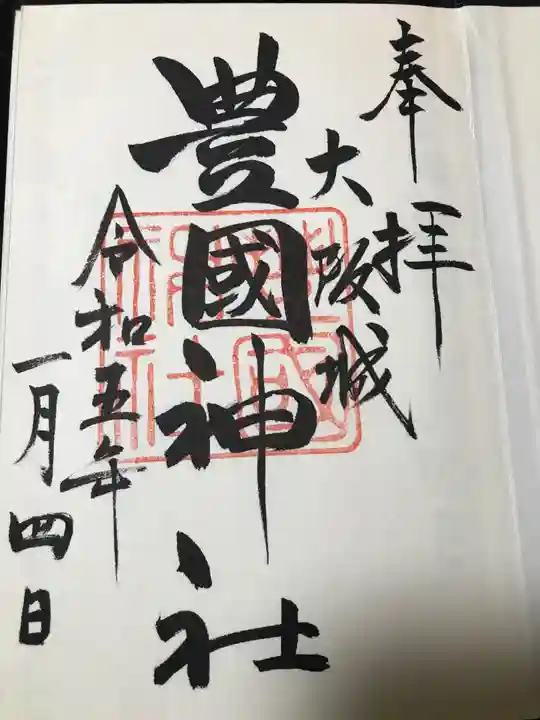 奉拝
大阪城
豊國神社
令和五年
一月四日
豊國神社